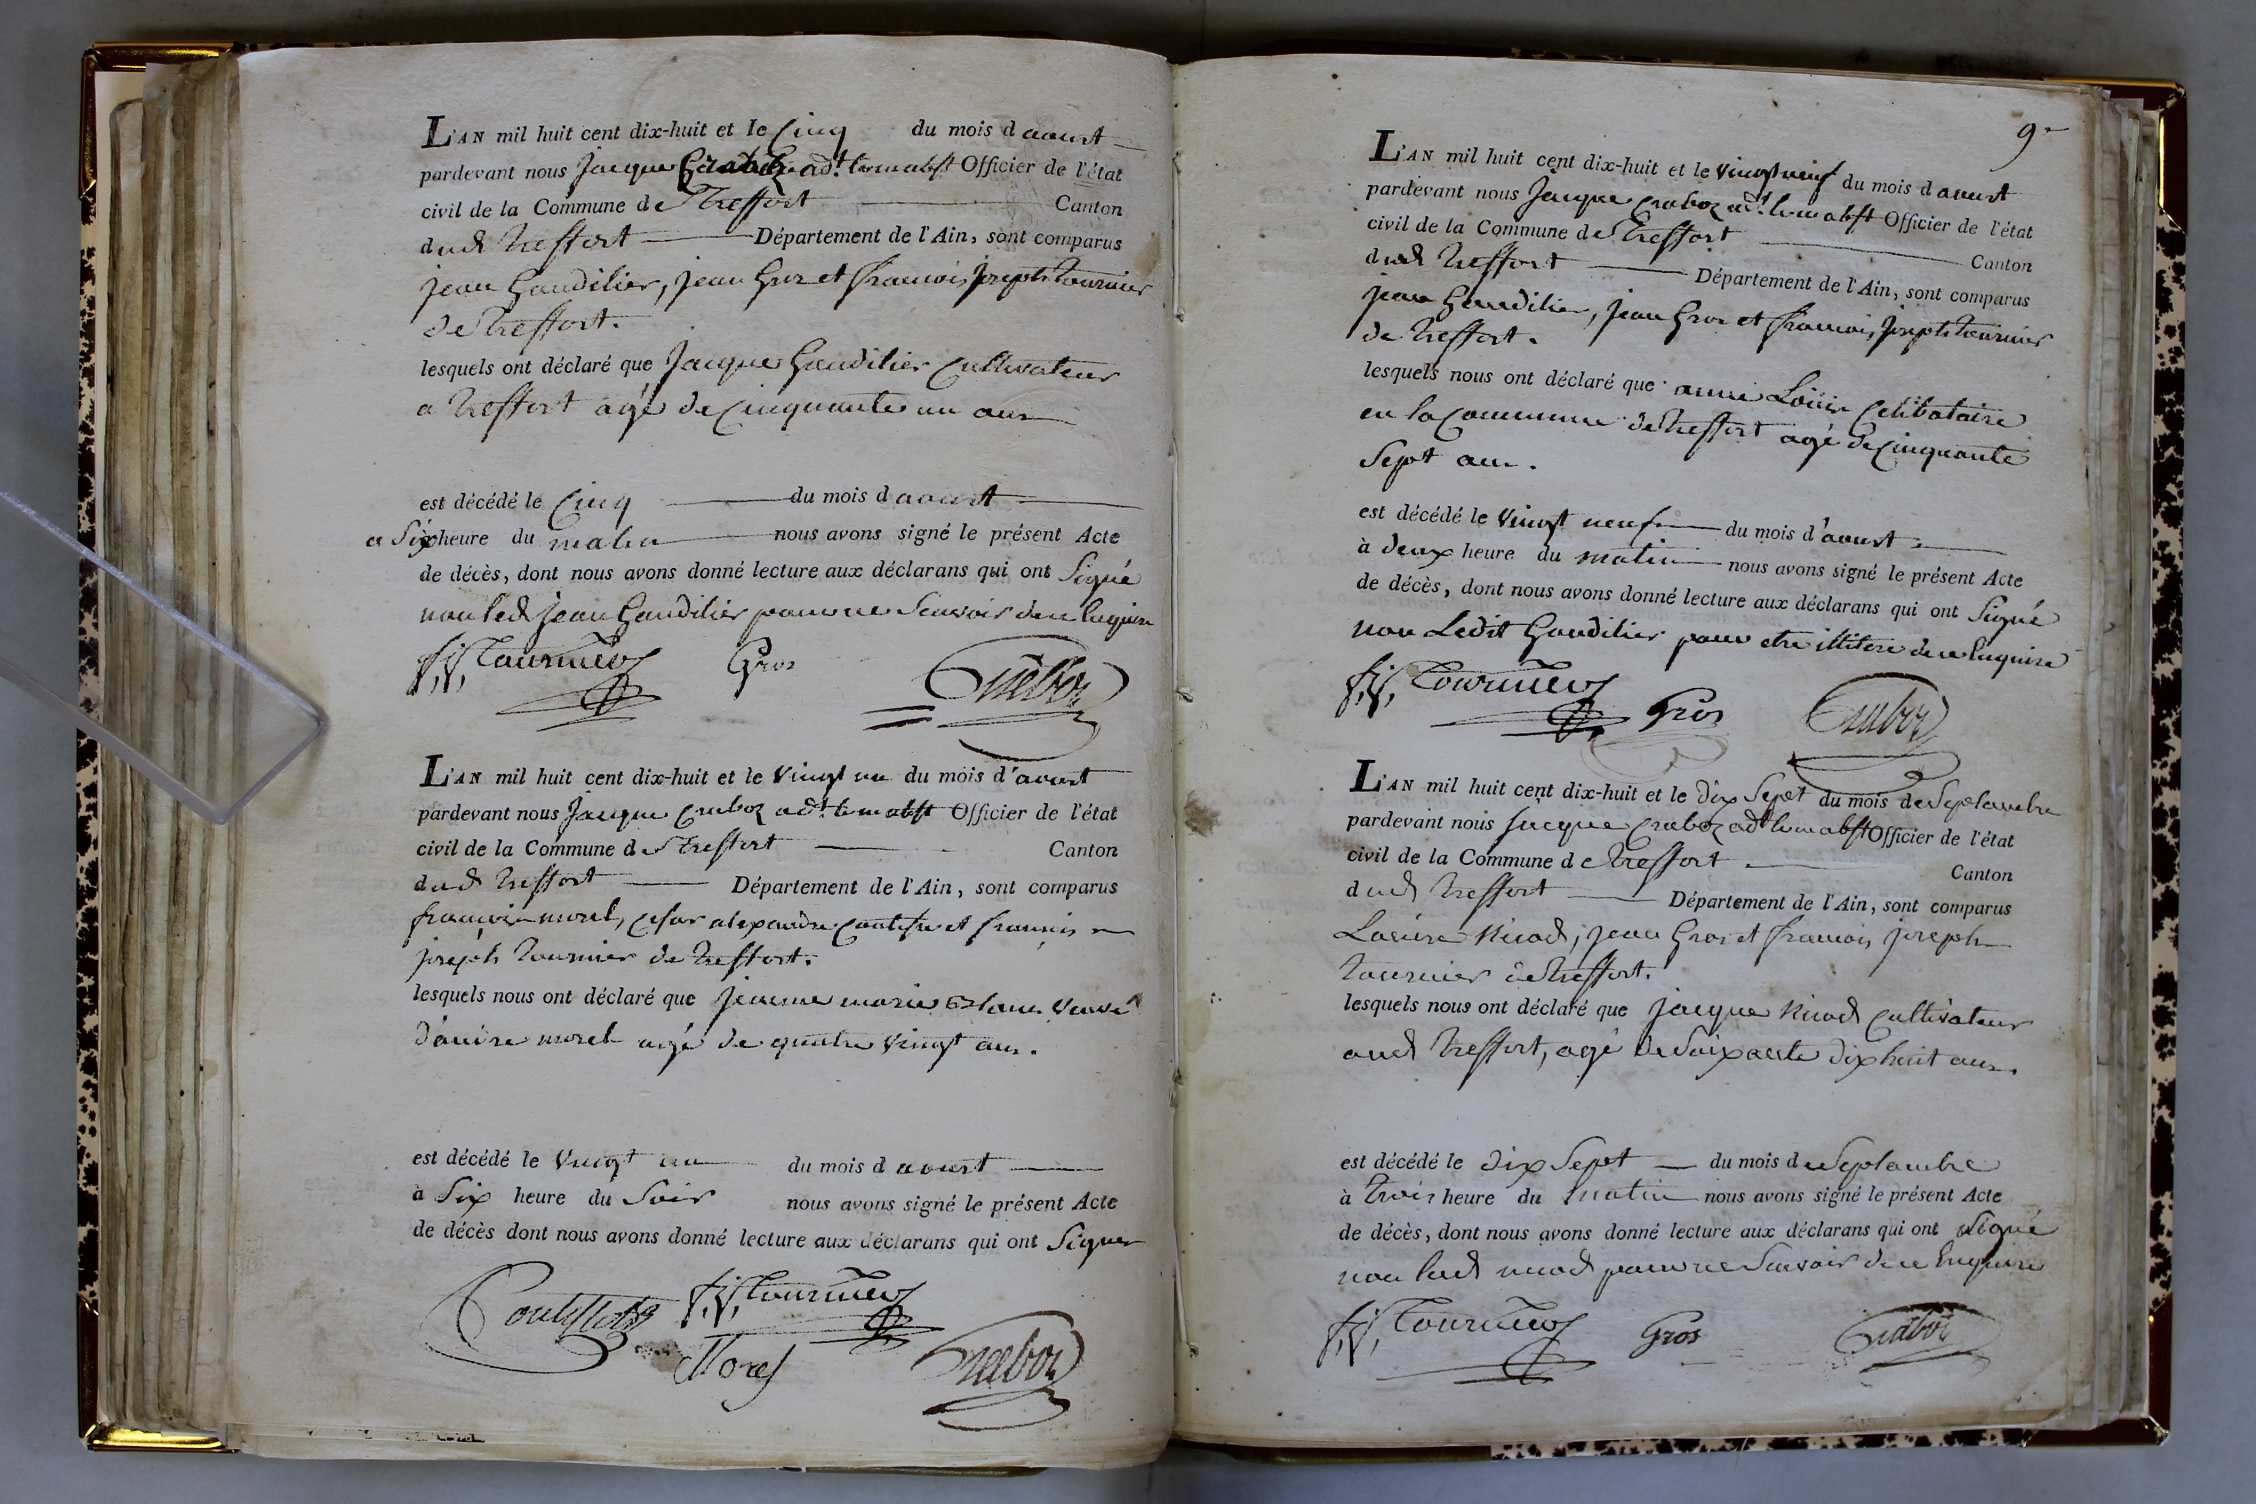 L'AN mil huit cent dix-huit et le Cinq du mois d aoust
pardevant nous Jacque Craboz adt. le mabst Officier de l'état
civil de la Commune de Treffort Canton
dud Treffort Département de l'Ain, sont comparus
jean Gaudilier, jean Gros et francois joseph tournier
de Treffort.
lesquels ont déclaré que Jacque Gaudilier Cultivateur
a Treffort agé de Cinquante un ans
est décédé le Cinq du mois d aoust
a Six heure du matin nous avons signé le présent Acte
de décès, dont nous avons donné lecture aux déclarans qui ont Signé
non led jean Gaudilier pour ne Scavoir de ce Enquire
f, j, Tournier Gros Craboz
L'AN mil huit cent dix-huit et le Vingt un du mois d'aoust
pardevant nous Jacque Craboz adt. le mabst Officier de l'état
civil de la Commune de Treffort Canton
dud Treffort Département de l'Ain, sont comparus
francois morel, cesar alexandre et francois
joseph Tournier de Treffort.
lesquels nous ont déclaré que jeanne marie veuve
d'andre morel agé de quatre Vingt ans.
est décédé le Vingt un du mois d aoust
à Six heure du Soir nous avons signé le présent Acte
de décès dont nous avons donné lecture aux déclarans qui ont Signer
f, j, Tournier
Morel Craboz
9
L'AN mil huit cent dix-huit et le Vingt neuf du mois d aoust
pardevant nous Jacque Craboz adt. le mabst Officier de l'état
civil de la Commune de Treffort Canton
dud Treffort Département de l'Ain, sont comparus
jean Gaudilier, jean Gros et francois joseph tournier
de Treffort.
lesquels nous ont déclaré que anne Celibataire
en la Commune de Treffort agé de Cinquante
Sept ans.
est décédé le Vingt neuf du mois d'aoust
à deux heure du matin nous avons signé le présent Acte
de décès, dont nous avons donné lecture aux déclarans qui ont Signé
non Ledit Gaudilier pour etre illitere de ce Enquire
f, j, Tournier Gros Craboz
L'AN mil huit cent dix-huit et le dix Sept du mois de Septambre
pardevant nous Jacque Craboz adt le mabst Officier de l'état
civil de la Commune de Treffort Canton
dud Treffort Département de l'Ain, sont comparus
Nicod, jean Gros et francois joseph
Tournier de Treffort.
lesquels nous ont déclaré que jacque Nicod Cultivateur
aud Treffort, agé de Soixante dix huit ans.
est décédé le dix Sept du mois de Septambre
à trois heure du matin nous avons signé le présent Acte
de décès, dont nous avons donné lecture aux déclarans qui ont Signé
non led nicod pour ne Scavoir de ce Enquire
f, j, Tournier Gros Craboz